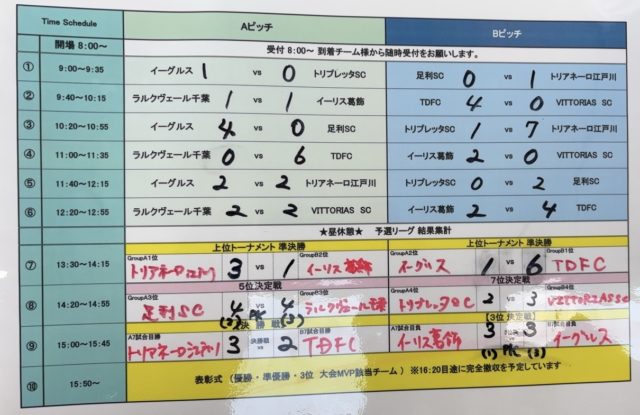 Time Schedule Aピッチ Bピッチ
開場 8:00~ 受付 8:00~ 到着チーム様から随時受付をお願いします。
① 9:00~9:35 イーグルス 1 vs 0 トリプレッタSC 足利SC 0 vs 1 トリアネーロ江戸川
② 9:40~10:15 ラルクヴェール千葉 1 vs 1 イーリス葛飾 TDFC 4 vs 0 VITTORIAS SC
③ 10:20~10:55 イーグルス 4 vs 0 足利SC トリプレッタSC 1 vs 7 トリアネーロ江戸川
④ 11:00~11:35 ラルクヴェール千葉 0 vs 6 TDFC イーリス葛飾 2 vs 0 VITTORIAS SC
⑤ 11:40~12:15 イーグルス 2 vs 2 トリアネーロ江戸川 トリプレッタSC 0 vs 2 足利SC
⑥ 12:20~12:55 ラルクヴェール千葉 2 vs 2 VITTORIAS SC イーリス葛飾 2 vs 4 TDFC
★昼休憩★ 予選リーグ 結果集計
上位トーナメント 準決勝 上位トーナメント 準決勝
⑦ 13:30~14:15 GroupA1位 トリアネーロ江戸川 3 vs 1 GroupB2位 イーリス葛飾 GroupA2位 イーグルス 1 vs 6 GroupB1位 TDFC
5位決定戦 7位決定戦
⑧ 14:20~14:55 GroupA3位 足利SC 4 vs 4 GroupB3位 ラルクヴェール千葉 GroupA4位 トリプレッタSC 2 vs 3 GroupB4位 VITTORIAS SC
(2) PK (3)
決勝戦 【3位 決定戦】
⑨ 15:00~15:45 A7試合目勝 トリアネーロ江戸川 3 決勝戦 vs 2 B7試合目勝 TDFC A7試合目負 イーリス葛飾 3 vs 3 B7試合目負 イーグルス
(1) PK (3)
⑩ 15:50~ 表彰式 (優勝・準優勝・3位 大会MVP該当チーム) ※16:20目途に完全撤収を予定しています